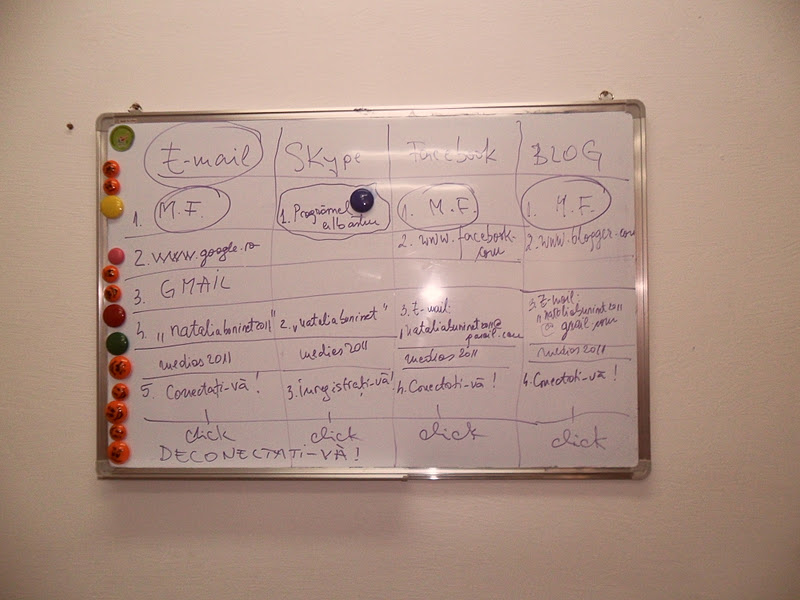 E-mail
1. M.F.
2. www.google.ro
3. GMAIL
4. „nataliabuninet2011"
medios2011
5. Conectați-vă!
click
DECONECTAȚI-VĂ!
Skype
1. Programel
albăstriu
2. „nataliabuninet"
medios2011
3. Înregistrați-vă!
click
Facebook
1. M.F.
2. www.facebook.
com
3. E-mail:
„nataliabuninet2011@
gmail.com
medios2011
4. Conectați-vă!
click
BLOG
1. M.F.
2. www.blogger.com
3. E-mail:
„nataliabuninet2011
@ gmail.com
medios2011
4. Conectați-vă!
click